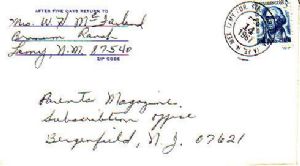 AFTER FIVE DAYS RETURN TO
Mrs. W. H. McFarland
Ranch
Lamy, N.M. 87540
ZIP CODE
Parents Magazine
Subscription Office
Bergenfield, N. J. 07621